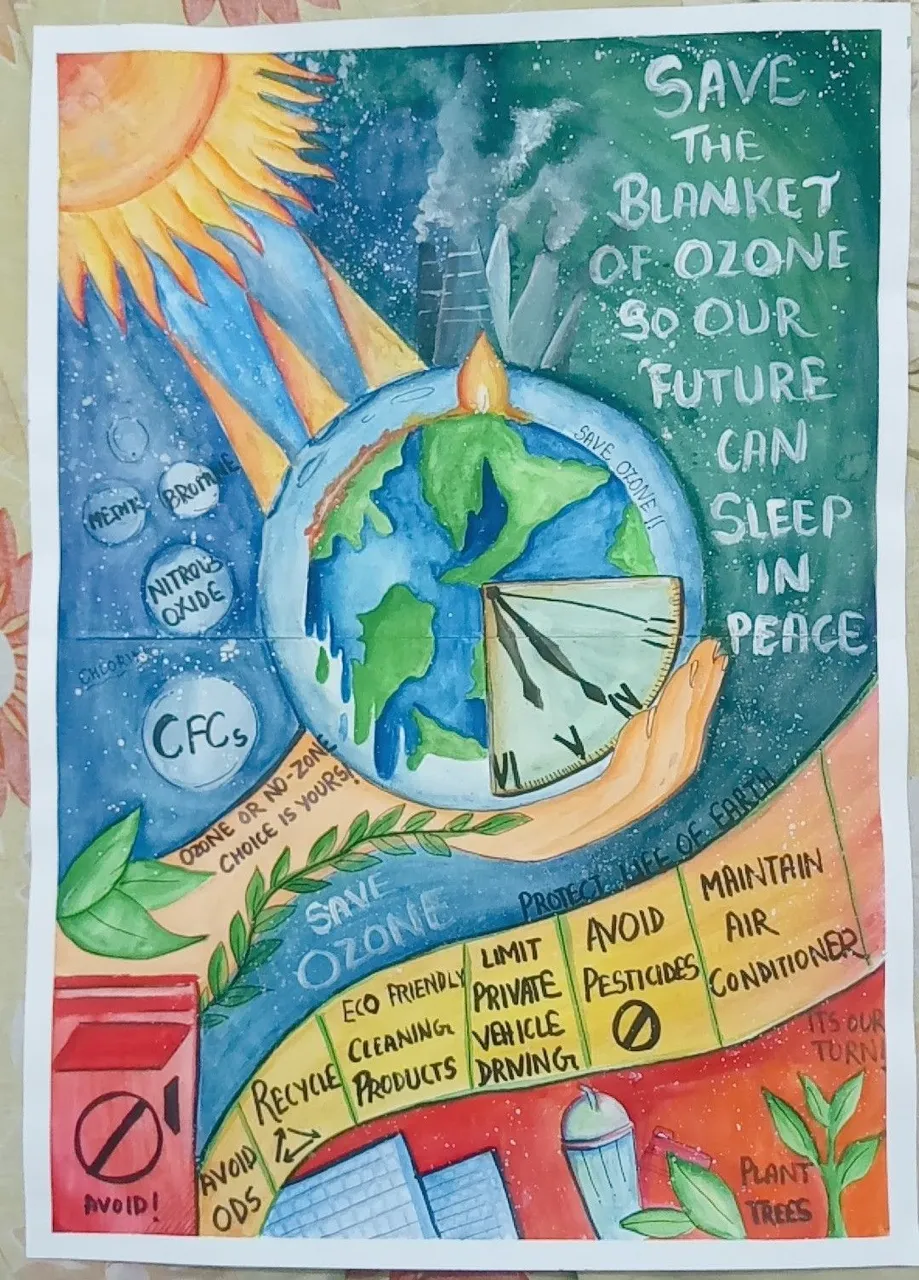 SAVE
THE
BLANKET
OF OZONE
SO OUR
FUTURE
CAN
SLEEP
IN
PEACE
SAVE OZONE!!
BROMINE
NITROUS
OXIDE
CFCs
VI
V
IV
III
OZONE OR NO-ZONE
CHOICE IS YOURS!
SAVE
OZONE
PROTECT LIFE OF EARTH
AVOID
ODS
RECYCLE
ECO FRIENDLY
CLEANING
PRODUCTS
LIMIT
PRIVATE
VEHICLE
DRNING
AVOID
PESTICIDES
MAINTAIN
AIR
CONDITIONER
ITS OUR
TURN!
AVOID!
PLANT
TREES